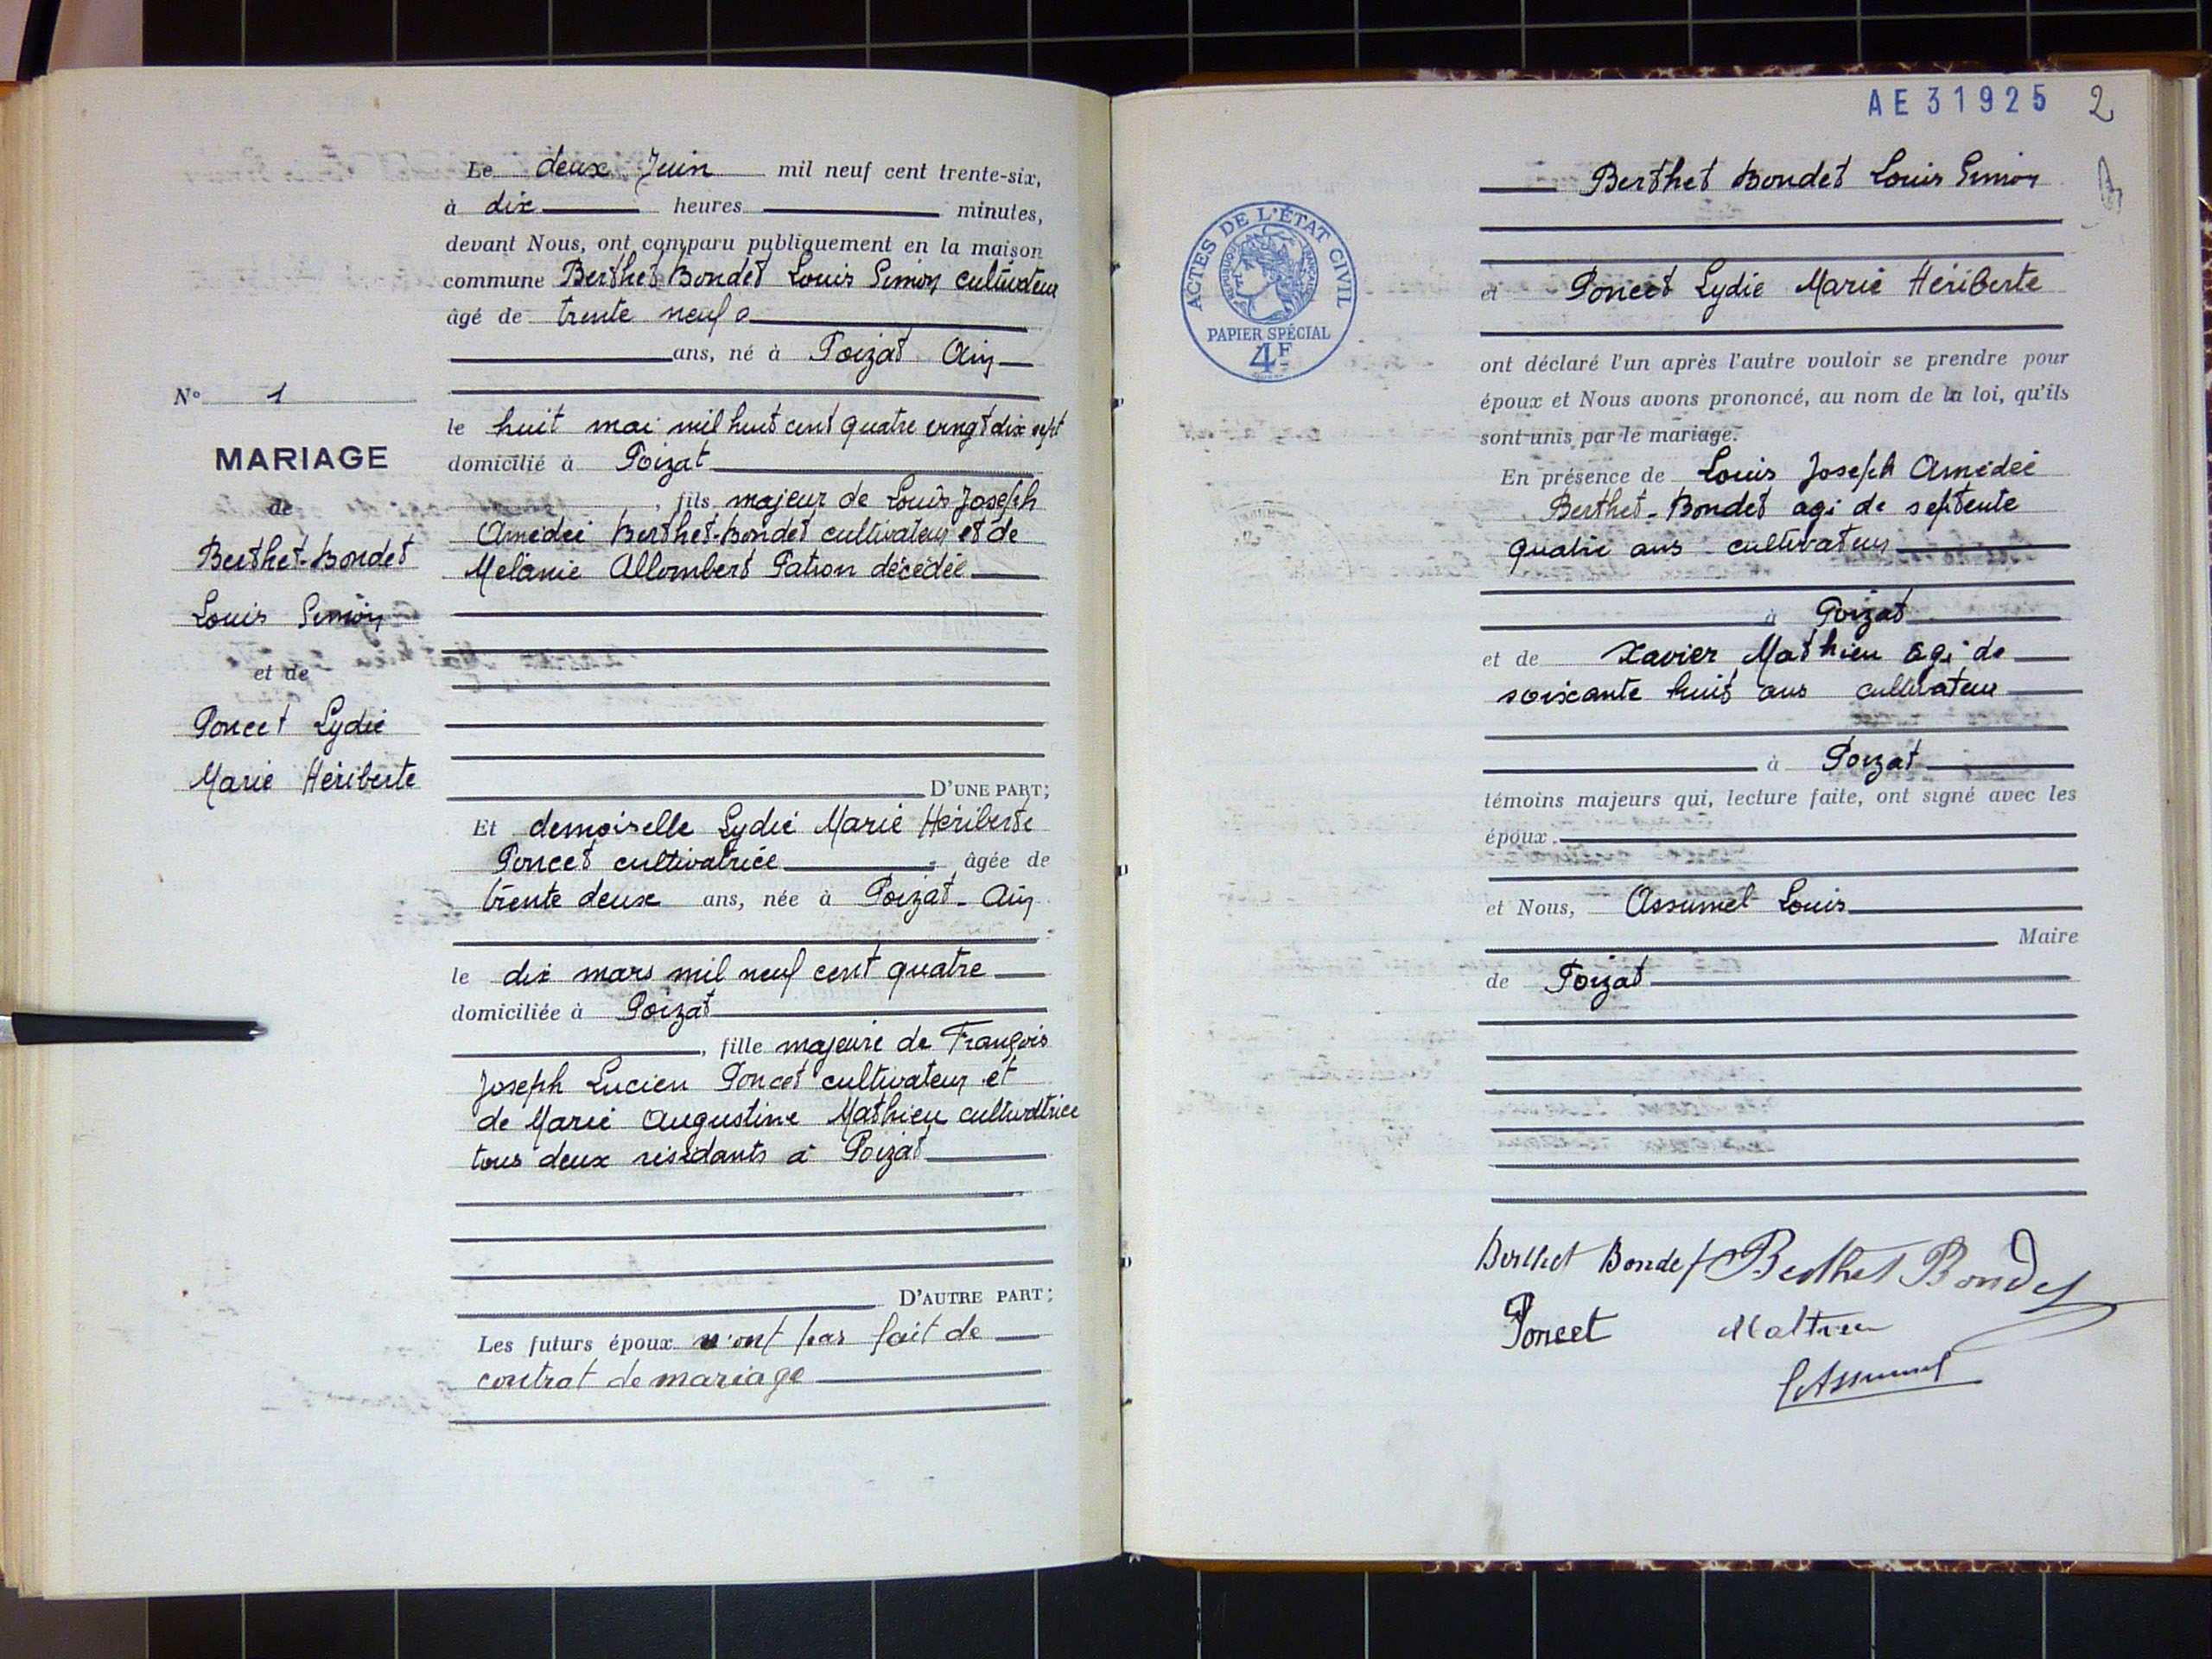 Le deux Juin mil neuf cent trente-six,
à dix heures minutes,
devant Nous, ont comparu publiquement en la maison
commune Berthet Bondet Louis Simon cultivateur
âgé de trente neuf
ans, né à Poizat Ain
le huit mai mil huit cent quatre vingt dix sept
domicilié à Poizat
, fils majeur de Louis Joseph
Amédée Berthet-Bondet cultivateur et de
Mélanie Allombert Patron décédée
D'UNE PART;
Et demoiselle Lydie Marie Hériberte
Poncet cultivatrice âgée de
trente deux ans, née à Poizat - Ain
le dix mars mil neuf cent quatre
domiciliée à Poizat
, fille majeure de François
Joseph Lucien Poncet cultivateur et
de Marie Augustine Mathieu cultivatrice
tous deux résidants à Poizat
D'AUTRE PART;
Les futurs époux n'ont pas fait de
contrat de mariage
N° 1
MARIAGE
de
Berthet-Bondet
Louis Simon
et de
Poncet Lydie
Marie Hériberte
AE31925 2
Berthet Bondet Louis Simon
et Poncet Lydie Marie Hériberte
ont déclaré l'un après l'autre vouloir se prendre pour
époux et Nous avons prononcé, au nom de la loi, qu'ils
sont unis par le mariage.
En présence de Louis Joseph Amédée
Berthet-Bondet agé de septente
quatre ans cultivateur
à Poizat
et de Xavier Mathieu agé de
soixante huit ans cultivateur
à Poizat
témoins majeurs qui, lecture faite, ont signé avec les
époux
et Nous, Assumel Louis
Maire
de Poizat
ACTES DE L'ÉTAT CIVIL
RÉPUBLIQUE FRANÇAISE
PAPIER SPÉCIAL
4F
Berthet Bondet Berthet Bondet
Poncet Mathieu
L Assumel